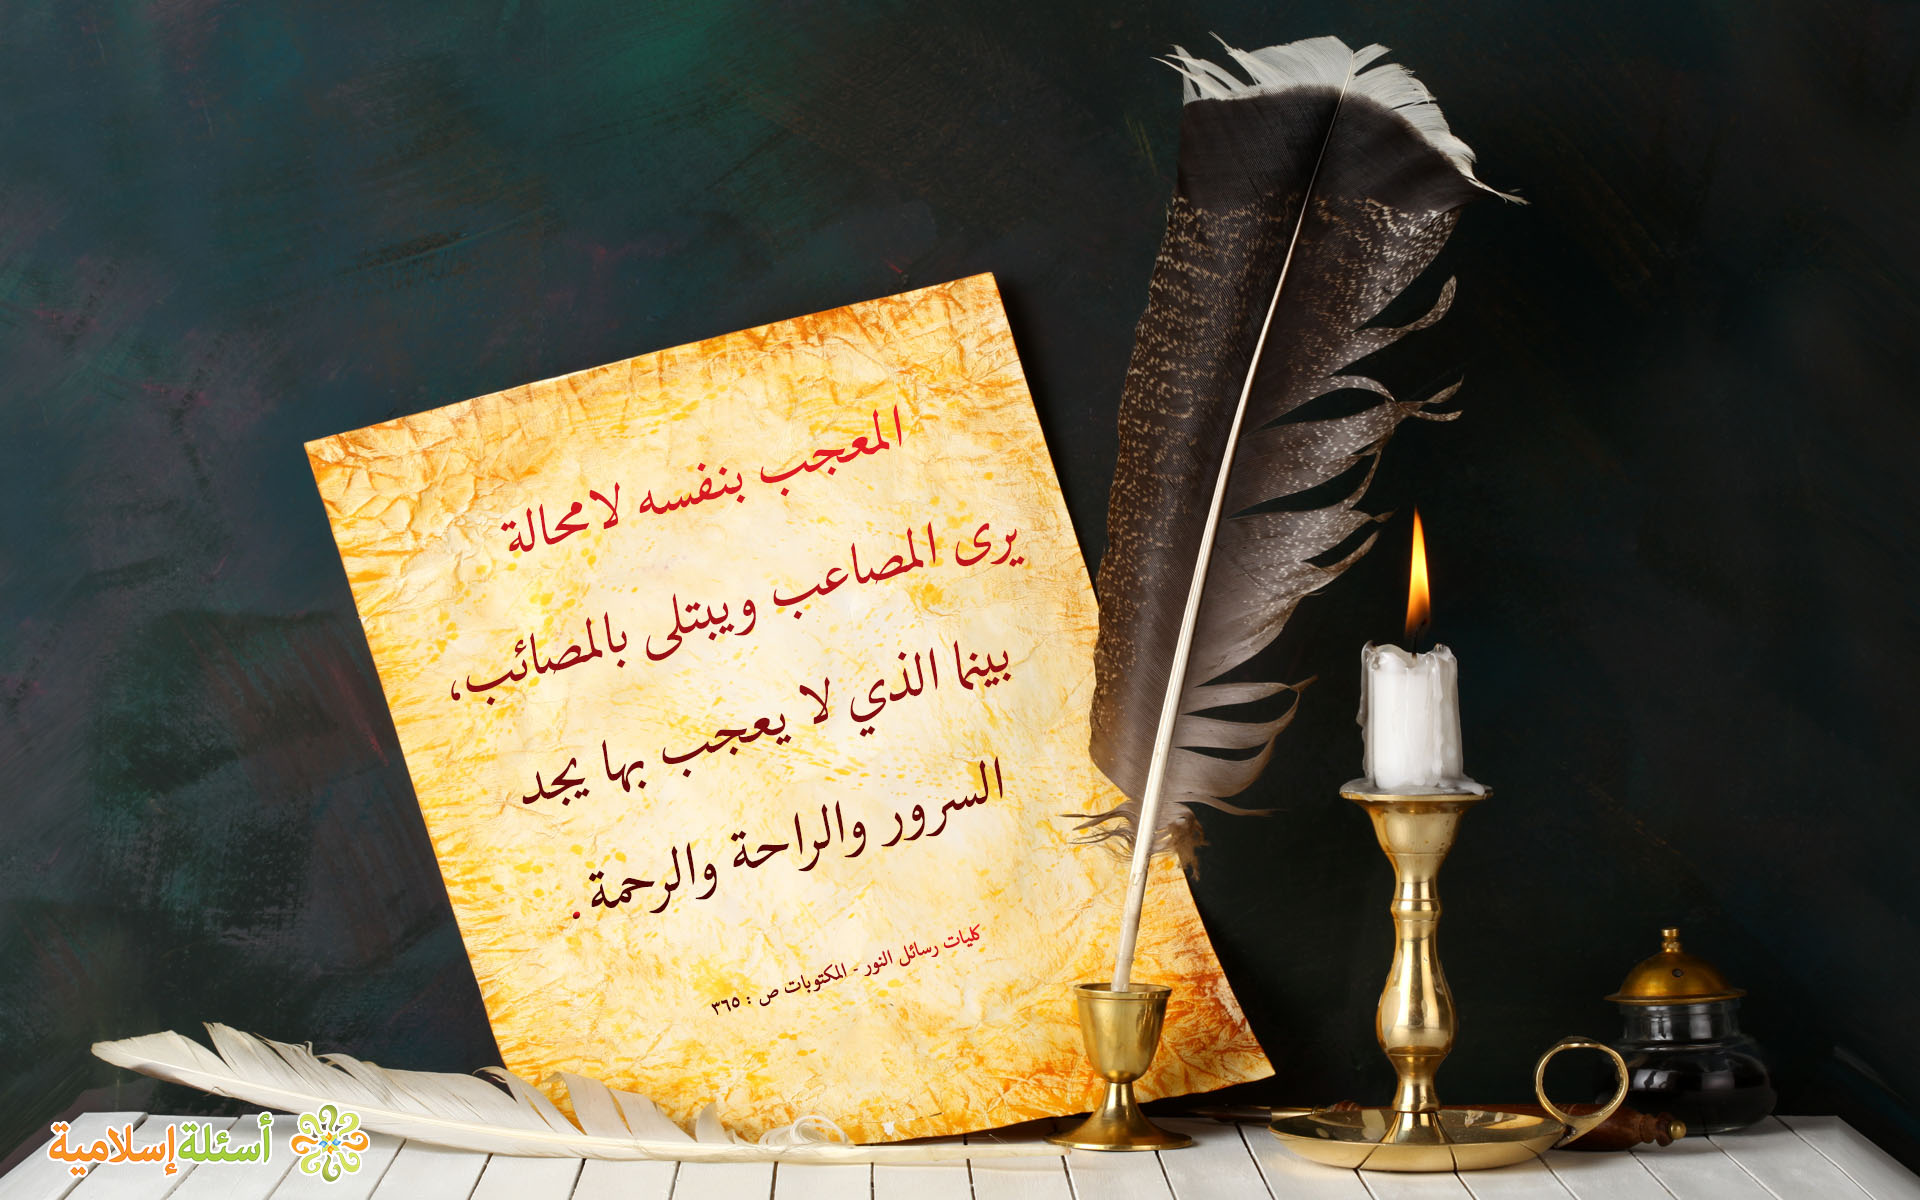 المعجب بنفسه لامحالة
يرى المصاعب ويبتلى بالمصائب،
بينما الذي لا يعجب بها يجد
السرور والراحة والرحمة.
كليات رسائل النور - المكتوبات ص : ٣٦٥
أسئلة إسلامية